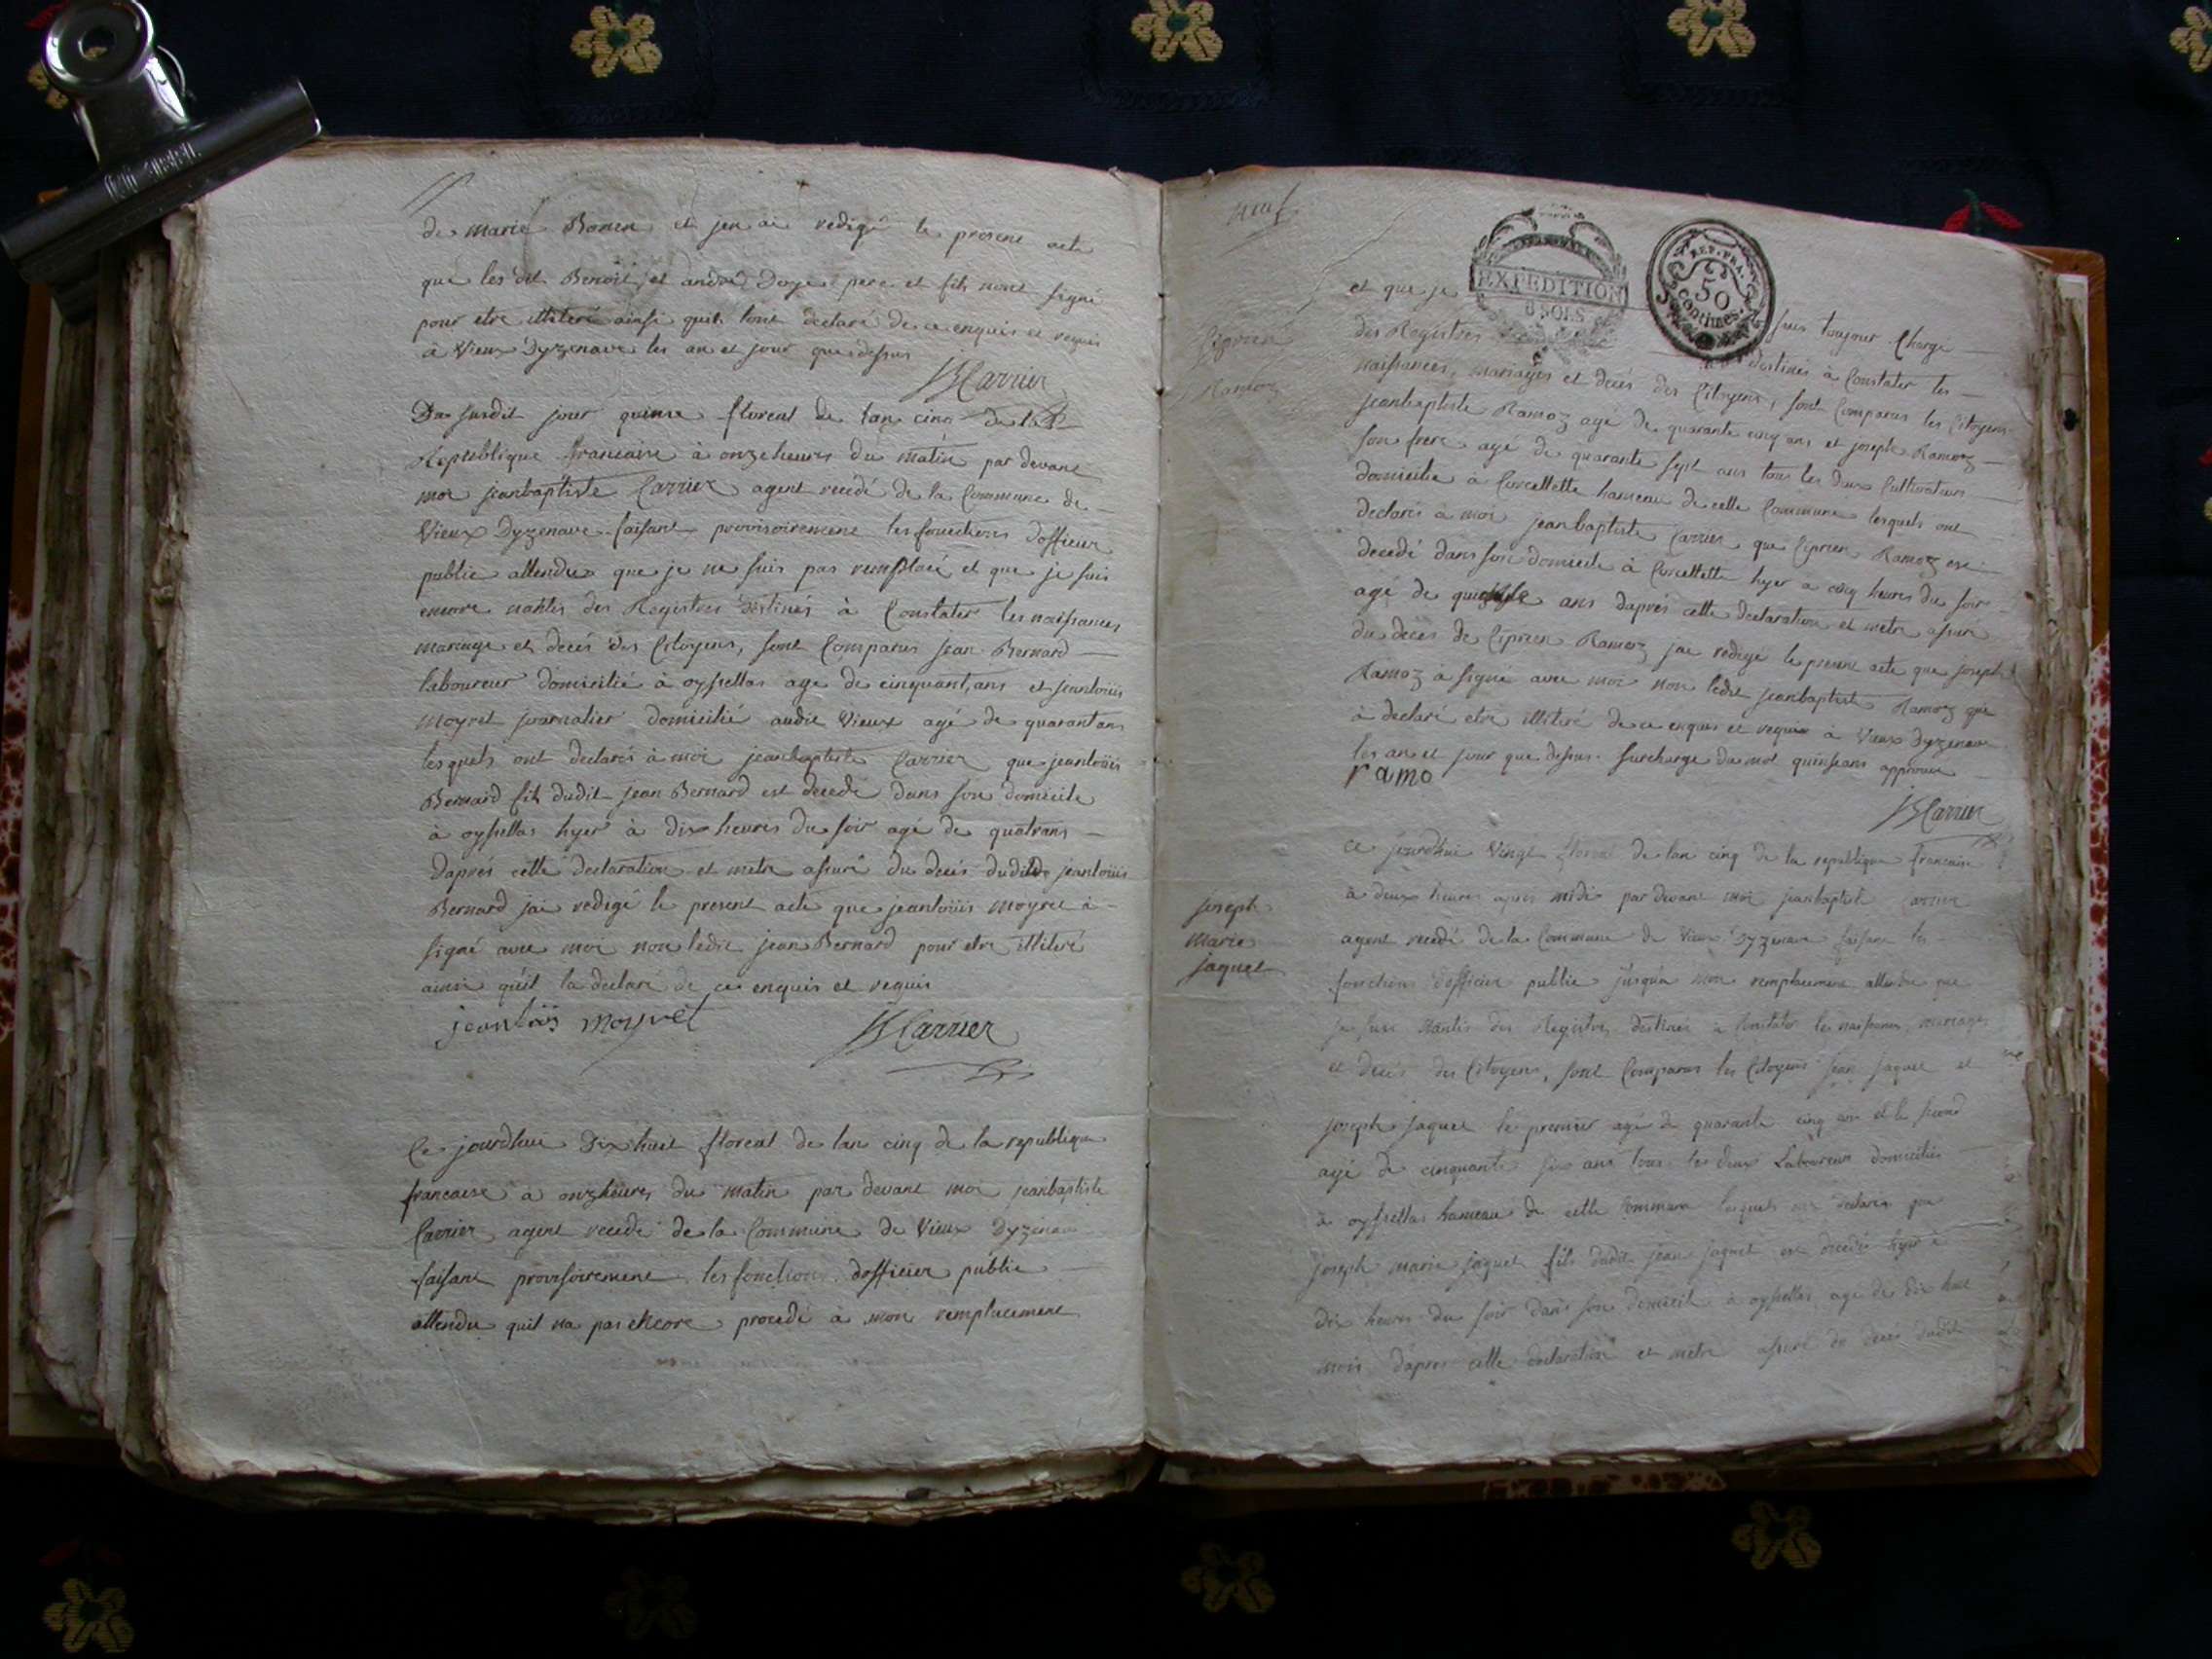 de marie Bonen et jen ai redigé le present acte
que les dit Benoit et andré Doge pere et fils nont signé
pour etre illiteré ainsi quil lont declaré de ce enquis et requis
à Vieux Dyzenave les an et jour que dessus
JBCarrier
Du susdit jour quinze floreal de lan cinq de la
Republique francaise à onze heures du matin par devant
moi jeanbaptiste Carrier agent recedé de la Commune de
Vieux Dyzenave faisant provisoirement les fonctions dofficier
public attendu que je ne suis pas remplacé et que je suis
encore nantis des Registres destinés à Constater les naissances
mariage et decés des Citoyens, sont Comparus jean Bernard
laboureur domicilié à oyssellas age de cinquant ans et jeanloüis
moyret journalier domicilié audit Vieux agé de quarant ans
lesquels ont declarés à moi jeanbaptiste Carrier que jeanloüis
Bernard fils dudit jean Bernard est decedé dans son domicile
à oyssellas hyer à dix heures du soir agé de quatrans
daprés cette declaration et metre assuré du decés dudit jeanloüis
Bernard jai redigé le present acte que jeanloüis moyret à
signé avec moi non ledit jean Bernard pour etre illiteré
ainsi quil la declaré de ce enquis et requis
jeanloüis moyret JBCarrier
Ce jourdhui Dix huit floreal de lan cinq de la republique
francaise à onzheures du matin par devant moi jeanbaptiste
Carrier agent recedé de la Commune de Vieux Dyzenave
faisant provisoirement les fonctions dofficier public
attendu quil na pas encore procedé à mon remplacement
EXPEDITION
8 SOLS
REP. FRA.
50
Centimes.
et que je suis toujour Chargé
Ciprien
Ramoz
des Registres destinés à Constater les
naissances, mariages et decés des Citoyens, sont Comparus les Citoyens
jeanbaptiste Ramoz agé de quarante cinq ans et joseph Ramoz
son frere agé de quarante sept ans tous les deux Cultivateurs
domicilie à Corcellette hameau de cette Commune lesquels ont
declarés à moi jeanbaptiste Carrier que Ciprien Ramoz est
decedé dans son domicile à Corcellette hyer a cinq heures du soir
agé de quinse ans daprés cette declaration et metre assuré
du decés de Ciprien Ramoz jai redigé le present acte que joseph
Ramoz à signé avec moi non ledit jeanbaptiste Ramoz qui
à declaré etre illiteré de ce enquis et requis à Vieux Dyzenave
les an et jour que dessus surcharge du mot quinseans approuvé
ramo
JBCarrier
ce jourdhui Vingt floreal de lan cinq de la republique francaise
à deux heures apres midi par devant moi jeanbaptiste Carrier
joseph
marie
jaquet
agent recedé de la Commune de Vieux Dyzenave faisant les
fonctions dofficier public jusqua mon remplacement attendu que
je suis Nantis des Registres destinés à Constater les naissances, mariages
et decés des Citoyens, sont Comparus les Citoyens jean jaquet et
joseph jaquet le premier agé de quarante cinq ans et le second
agé de cinquante six ans tous les deux Laboureurs domiciliés
à oyssellas hameau de cette Commune lesquels ont declarés que
joseph marie jaquet fils dudit jean jaquet est decedé hyer à
dix heures du soir dans son domicile à oyssellas agé de dix huit
mois daprés cette declaration et metre assuré du decés dudit